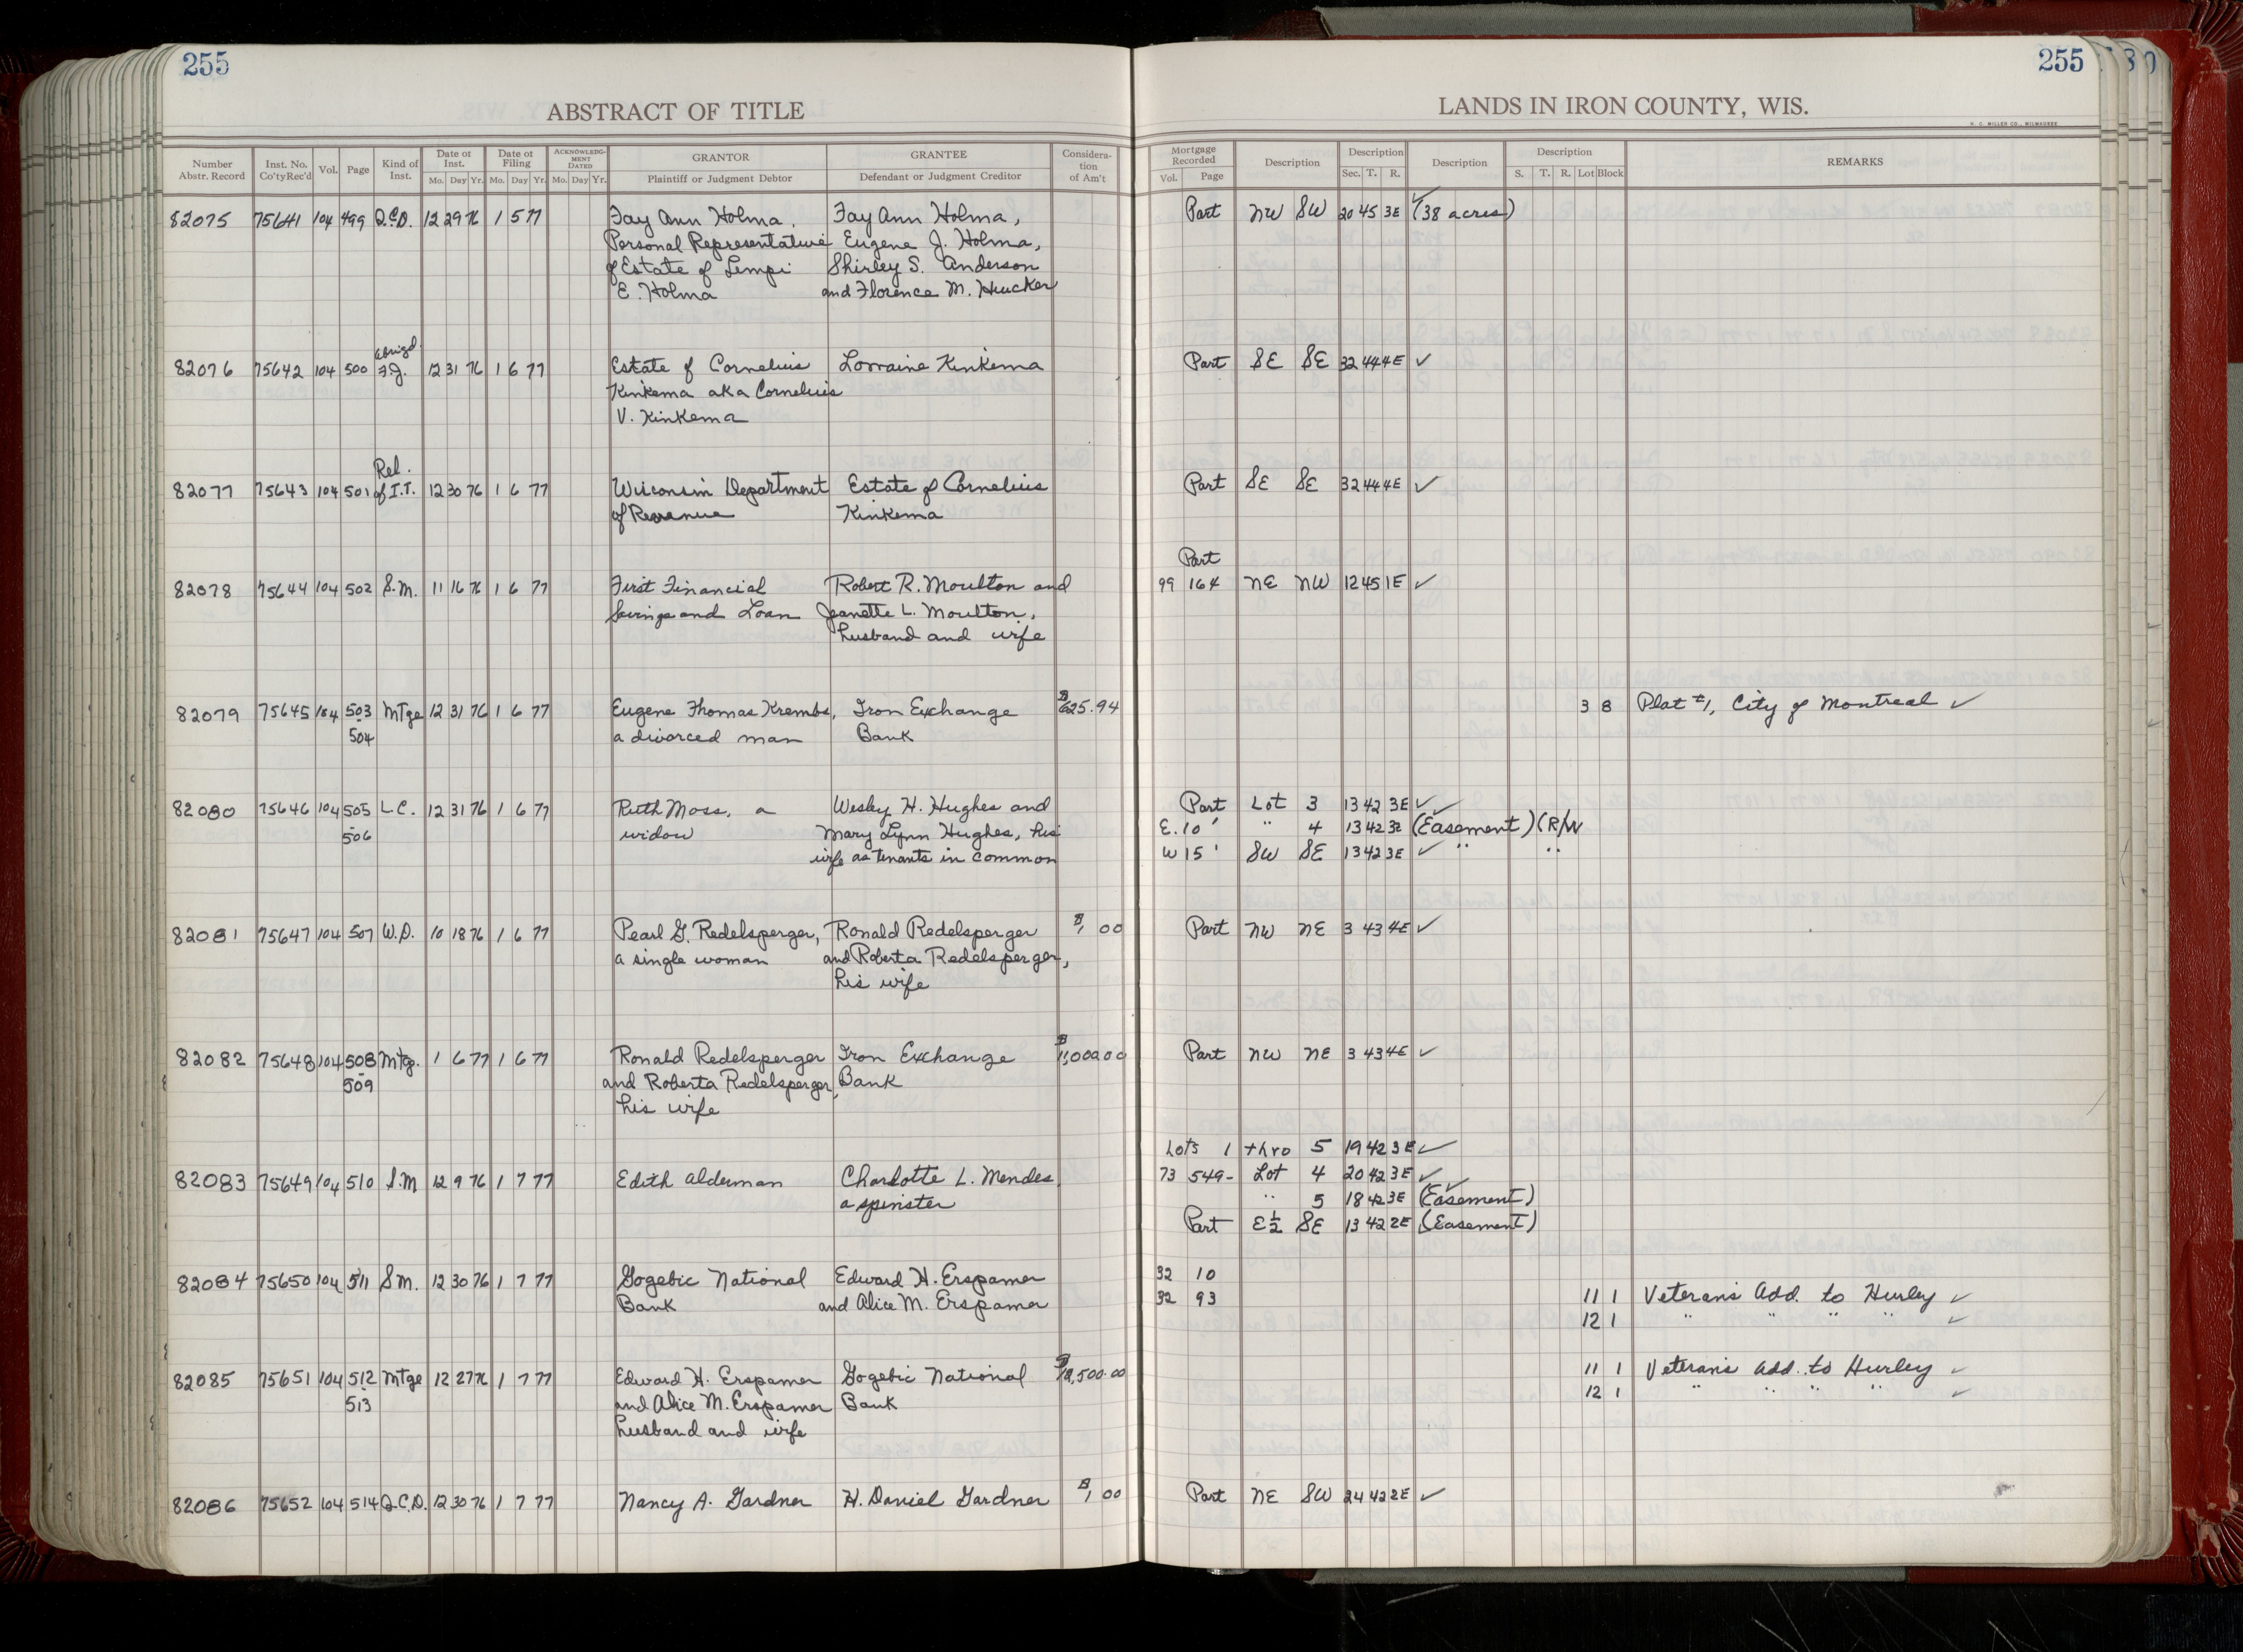 255
255
ABSTRACT OF TITLE
LANDS IN IRON COUNTY, WIS.
H. C. MILLER CO., MILWAUKEE
Number Abstr. Record Inst. No. Co'ty Rec'd Vol. Page Kind of Inst. Date of Inst. Mo. Day Yr. Date of Filing Mo. Day Yr. ACKNOWLEDGMENT DATED Mo. Day Yr. GRANTOR Plaintiff or Judgment Debtor GRANTEE Defendant or Judgment Creditor Consideration of Am't Mortgage Recorded Vol. Page Description Description Sec. T. R. Description Description S. T. R. Lot Block REMARKS
82075 75641 104 499 Q.C.D. 12 29 76 1 5 77 Fay Ann Holma, Fay Ann Holma, Part NW SW 20 45 3E ✓ (38 acres)
Personal Representative Eugene J. Holma,
of Estate of Lempi Shirley S. Anderson
E. Holma and Florence M. Hucker
Abrigd.
82076 75642 104 500 F.J. 12 31 76 1 6 77 Estate of Cornelius Lorraine Kinkema Part SE SE 32 44 4E ✓
Kinkema aka Cornelius
V. Kinkema
Rel.
82077 75643 104 501 of I.T. 12 30 76 1 6 77 Wisconsin Department Estate of Cornelius Part SE SE 32 44 4E ✓
of Revenue Kinkema
Part
82078 75644 104 502 S.M. 11 16 76 1 6 77 First Financial Robert R. Moulton and 99 164 NE NW 12 45 1E ✓
Savings and Loan Jeanette L. Moulton,
husband and wife
82079 75645 104 503 Mtge 12 31 76 1 6 77 Eugene Thomas Krembs, Iron Exchange 3 8 Plat #1, City of Montreal ✓
- 504 a divorced man Bank
82080 75646 104 505 L.C. 12 31 76 1 6 77 Ruth Moss, a Wesley H. Hughes and Part Lot 3 13 42 3E ✓
- 506 widow Mary Lynn Hughes, his E. 10' " 4 13 42 3E ✓ (Easement) (R/W
wife as tenants in common W 15' SW SE 13 42 3E ✓ " "
82081 75647 104 507 W.D. 10 18 76 1 6 77 Pearl G. Redelsperger, Ronald Redelsperger $1.00 Part NW NE 3 43 4E ✓
a single woman and Roberta Redelsperger,
his wife
82082 75648 104 508 Mtg. 1 6 77 1 6 77 Ronald Redelsperger Iron Exchange Part NW NE 3 43 4E ✓
- 509 and Roberta Redelsperger, Bank
his wife
Lots 1 thro 5 19 42 3E ✓
82083 75649 104 510 S.M 12 9 76 1 7 77 Edith Alderman Charlotte L. Mendes, 73 549- Lot 4 20 42 3E ✓
a spinster " 5 18 42 3E ✓ (Easement)
Part E½ SE 13 42 2E (Easement)
82084 75650 104 511 S.M. 12 30 76 1 7 77 Gogebic National Edward H. Erspamer 32 10
Bank and Alice M. Erspamer 32 93 11 1 Veterans Add. to Hurley ✓
12 1 " " " " ✓
82085 75651 104 512 Mtge 12 27 76 1 7 77 Edward H. Erspamer Gogebic National 11 1 Veterans Add. to Hurley ✓
- 513 and Alice M. Erspamer Bank 12 1 " " " " ✓
husband and wife
82086 75652 104 514 Q.C.D. 12 30 76 1 7 77 Nancy A. Gardner H. Daniel Gardner $1.00 Part NE SW 24 42 2E ✓